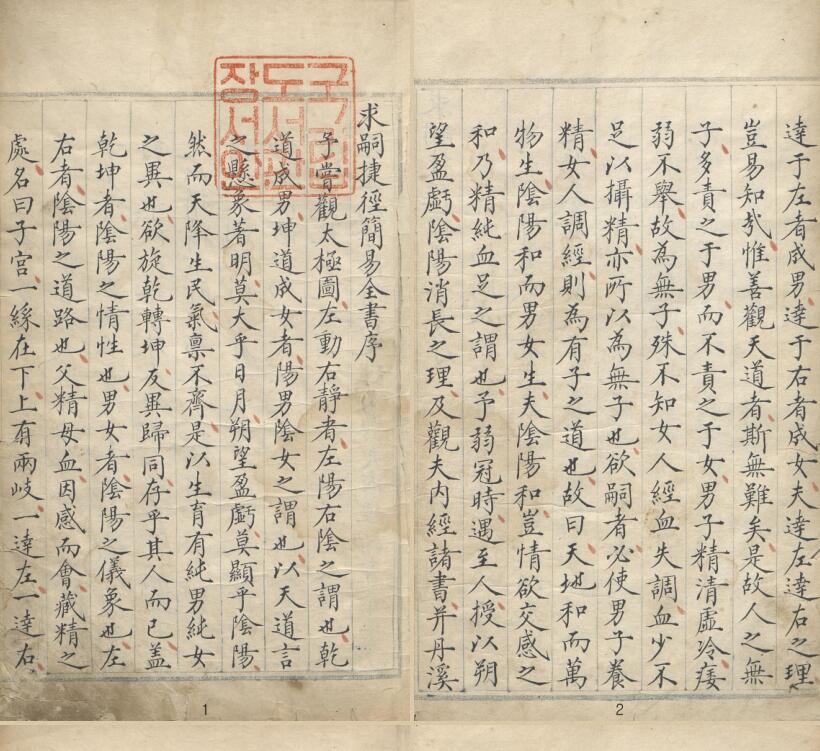 求嗣捷徑簡易全書序
予嘗觀太極圖左動右靜者左陽右陰之謂也乾
道成男坤道成女者陽男陰女之謂也以天道言
之縣象著明莫大乎日月朔望盈虧莫顯乎陰陽
然而天降生民氣禀不齊是以生育有純男純女
之異也欲旋乾轉坤反異歸同存乎其人而已盖
乾坤者陰陽之情性也男女者陰陽之儀象也左
右者陰陽之道路也父精母血因感而會藏精之
處名曰子宮一緣在下上有兩岐一達左一達右
1
達于左者成男達于右者成女夫達左達右之理
豈易知哉惟善觀天道者斯無難矣是故人之無
子多責之于男而不責之于女男子精清虛冷痿
弱不舉故為無子殊不知女人經血失調血少不
足以攝精亦所以為無子也欲嗣者必使男子養
精女人調經則為有子之道也故曰天地和而萬
物生陰陽和而男女生夫陰陽和豈情欲交感之
和乃精純血足之謂也予弱冠時遇至人授以朔
望盈虧陰陽消長之理及觀夫内經諸書并丹溪
2
국립
도서관
장서인